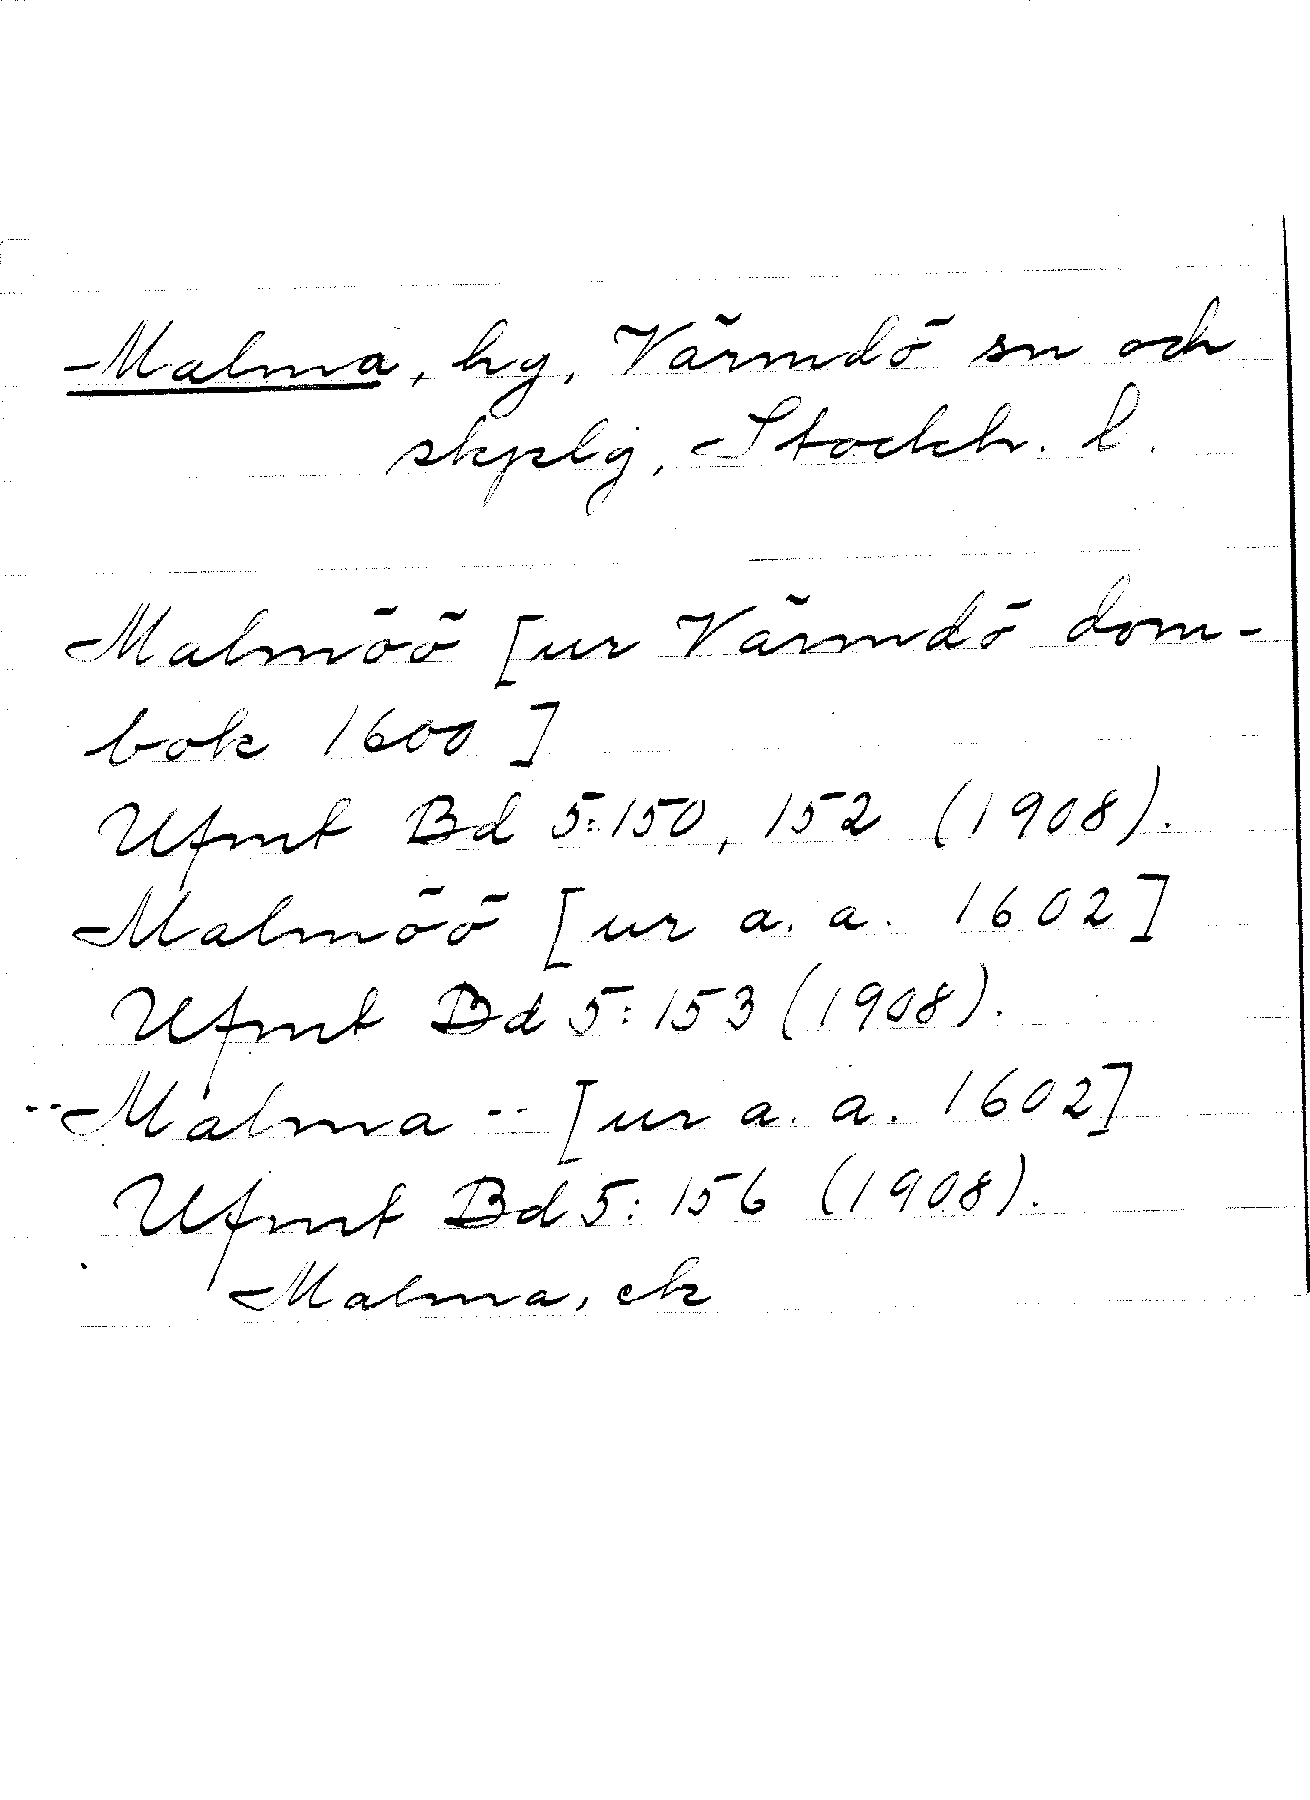 Malma, hg, Värmdö sn och
skplg, Stockh. l.
Malmöö [ur Värmdö dom-
bok 1600]
Ufmt Bd 5:150, 152 (1908).
Malmöö [ur a. a. 1602]
Ufmt Bd 5:153 (1908).
-- Malma -- [ur a. a. 1602]
Ufmt Bd 5:156 (1908).
Malma, ek